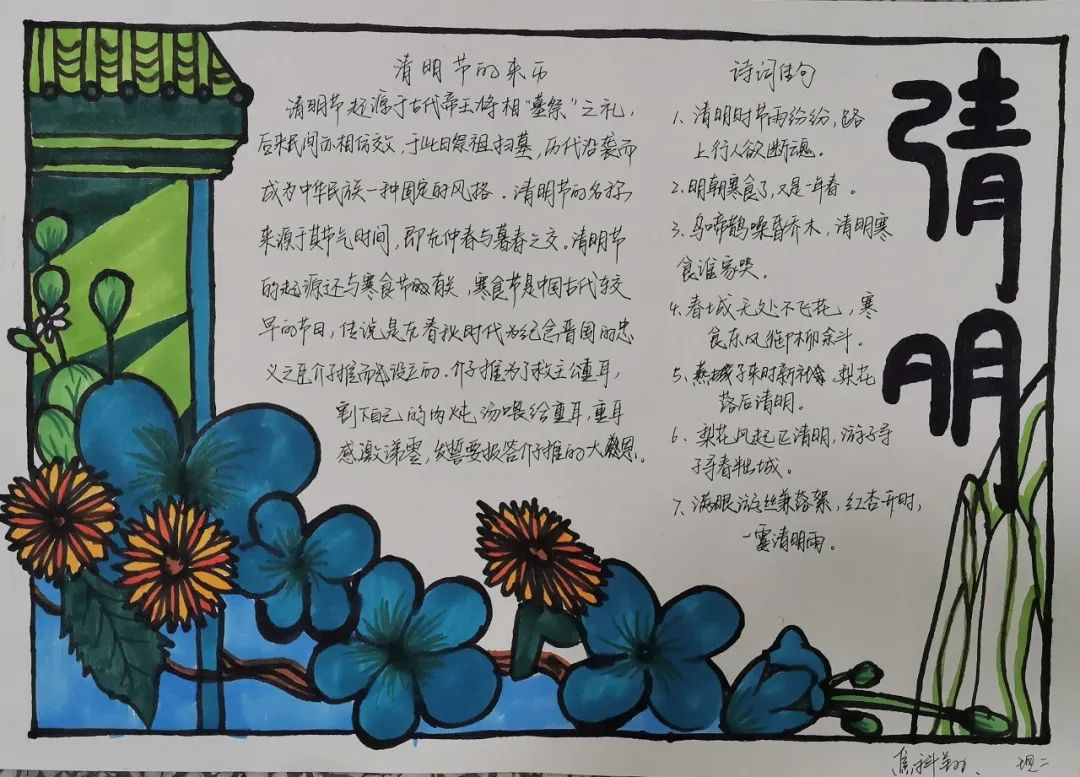 清明节的来历
清明节起源于古代帝王将相“墓祭”之礼,
后来民间亦相仿效,于此日祭祖扫墓,历代沿袭而
成为中华民族一种固定的风格.清明节的名称
来源于其节气时间,即在仲春与暮春之交.清明节
的起源还与寒食节有关,寒食节是中国古代较
早的节日,传说是在春秋时代为纪念晋国的忠
义之臣介子推而设立的.介子推为了救主重耳,
割下自己的肉炖汤喂给重耳,重耳
感激涕零,发誓要报答介子推的大恩。
诗词佳句
1、清明时节雨纷纷,路
上行人欲断魂。
2、明朝寒食了,又是一年春。
3、乌啼鹊噪昏乔木,清明寒
食谁家哭。
4、春城无处不飞花,寒
食东风御柳斜。
5、燕子来时新社,梨花
落后清明。
6、梨花风起正清明,游子寻
春半出城。
7、满眼游丝兼落絮,红杏开时,
一霎清明雨。
清明